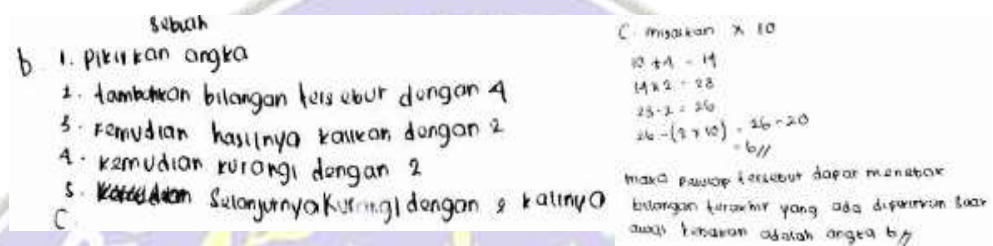 sebuah
b. 1. Pikirkan angka
2. tambahkan bilangan tersebut dengan 4
3. Kemudian hasilnya kalikan dengan 2
4. kemudian kurangi dengan 2
5. Selanjutnya kurangi dengan 2 kalinya
C.
C. misalkan x 10
10 + 4 = 14
14 x 2 = 28
28 - 2 = 26
26 - (2 x 10) = 26 - 20
= 6 //
maka tersebut dapat menebak
bilangan terakhir yang ada dipikiran saat
awal tebakan adalah angka 6 //